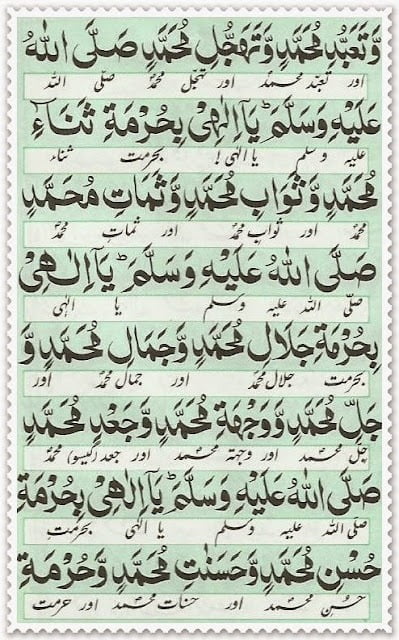 وَّتَعَبُّدِ مُحَمَّدٍ وَّتَهَجُّلِ مُحَمَّدٍ صَلَّى اللهُ
اور تعبّد محمدؐ اور تہجّل محمدؐ صلی اللہ
عَلَيْهِ وَسَلَّمَ ط يَآ اِلٰهِىْ بِحُرْمَةِ ثَنَآءِ
علیہ وسلم یا الٰہی! بحرمت ثناء
مُحَمَّدٍ وَّثَوَابِ مُحَمَّدٍ وَّثَمَاتِ مُحَمَّدٍ
محمدؐ اور ثواب محمدؐ اور ثمات محمدؐ
صَلَّى اللهُ عَلَيْهِ وَسَلَّمَ ط يَآ اِلٰهِىْ
صلّی اللہ علیہ وسلم یا الٰہی
بِحُرْمَةِ جَلَالِ مُحَمَّدٍ وَّجَمَالِ مُحَمَّدٍ وَّ
بحرمت جلال محمدؐ اور جمال محمدؐ اور
جَلِّ مُحَمَّدٍ وَّوِجْهَةِ مُحَمَّدٍ وَّجَعْدِ مُحَمَّدٍ
جلّ محمد اور وجہۃ محمد اور جعد (گیسو) محمدؐ
صَلَّى اللهُ عَلَيْهِ وَسَلَّمَ ط يَآ اِلٰهِىْ بِحُرْمَةِ
صلی اللہ علیہ وسلم یا الٰہی بحرمتِ
حُسْنِ مُحَمَّدٍ وَّحَسَنٰتِ مُحَمَّدٍ وَّحُرْمَةِ
حُسنِ محمد اور حسنات محمد اور حرمت